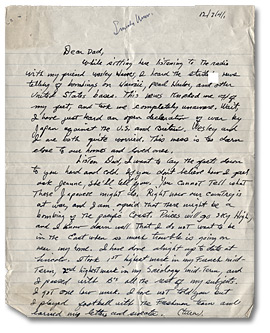 12/7/41
Dear Dad,
While sitting here listening to the radio
with my friend Wesley I heard the
talking of bombings on Hawaii, Pearl Harbor, and other
United States bases. This news me off
my feet and took me completely unaware. Wait
I have just heard an open declaration of war by
Japan against the U.S. and Britain, Wesley and
I are both quite worried. This news is too darn
close to our homes and loved ones.
Listen Dad, I want to lay the facts down
to you hard and cold. If you don't believe how I feel
ask Jeanne, She'll tell you. You cannot tell what
these Japanese might do. Right now our Country is
at war, and I am afraid that there might be a
bombing of the pacific Coast. Prices will go sky High,
and I know darn well that I do not want to be
in the East when so much trouble is going on
near my home. I have done alright up to date at
Lincoln. I took 1st highest mark in my French mid-
Term, 2nd highest mark in my Sociology mid-Term, and
I passed with B's all the rest of my subjects.
I got one low mark. I have not told you but
I played football with the Freshman team and
earned my letter and